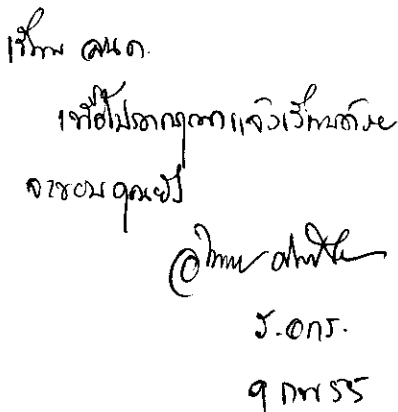 เรียน ลนก.
เพื่อโปรดกรุณาแจ้งเวียนด้วย
จะขอบคุณยิ่ง
ร.อกร.
9 กพ 55